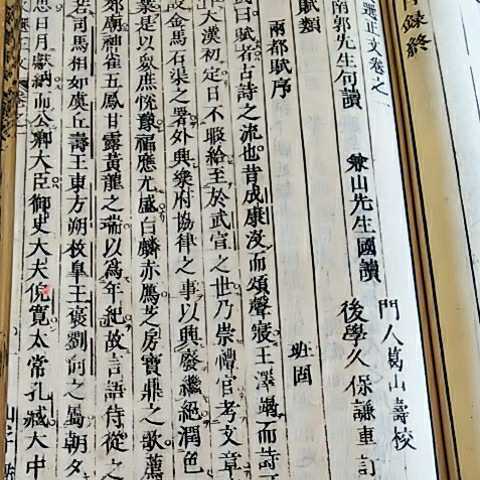 序錄終
選正文卷之
南郭先生句讀
兼山先生國讀
門人葛山壽校
後學久保謙重訂
賦類
兩都賦序
班固
曰賦者古詩之流也昔成康沒而頌聲寢王澤竭而詩
大漢初定日不暇給至於武宣之世乃崇禮官考文章
設金馬石渠之署外興樂府協律之事以興廢繼絕潤色
業是以衆庶悅豫福應尤盛白麟赤鴈芝房寶鼎之歌薦
郊廟神雀五鳳甘露黃龍之瑞以爲年紀故言語侍從之
若司馬相如虞丘壽王東方朔枚皐王褒劉向之屬朝夕
思日月獻納而公卿大臣御史大夫倪寬太常孔臧太中